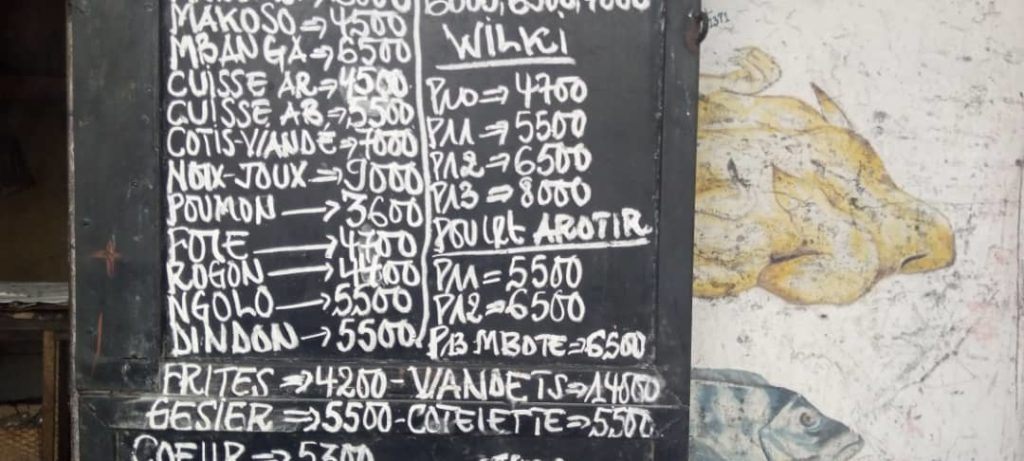 MAKOSO → 4500
MBANGA → 6500
CUISSE AR → 4500
CUISSE AB → 5500
COTIS-VIANDE → 7000
NOIX-JOUX ⇒ 9000
POUMON → 3600
FOIE → 4700
ROGON → 4400
NGOLO → 5500
DINDON → 5500
6000, 6500, 7000
WILKI
P10 ⇒ 4700
P11 ⇒ 5500
P12 ⇒ 6500
P13 ⇒ 8000
AROTIR
P11 = 5500
P12 = 6500
P13 MBOTE ⇒ 6500
FRITES ⇒ 4200 - VIANDETS ⇒ 14000
GESIER ⇒ 5500 - COTELETTE ⇒ 5500
COEUR ⇒ 5300